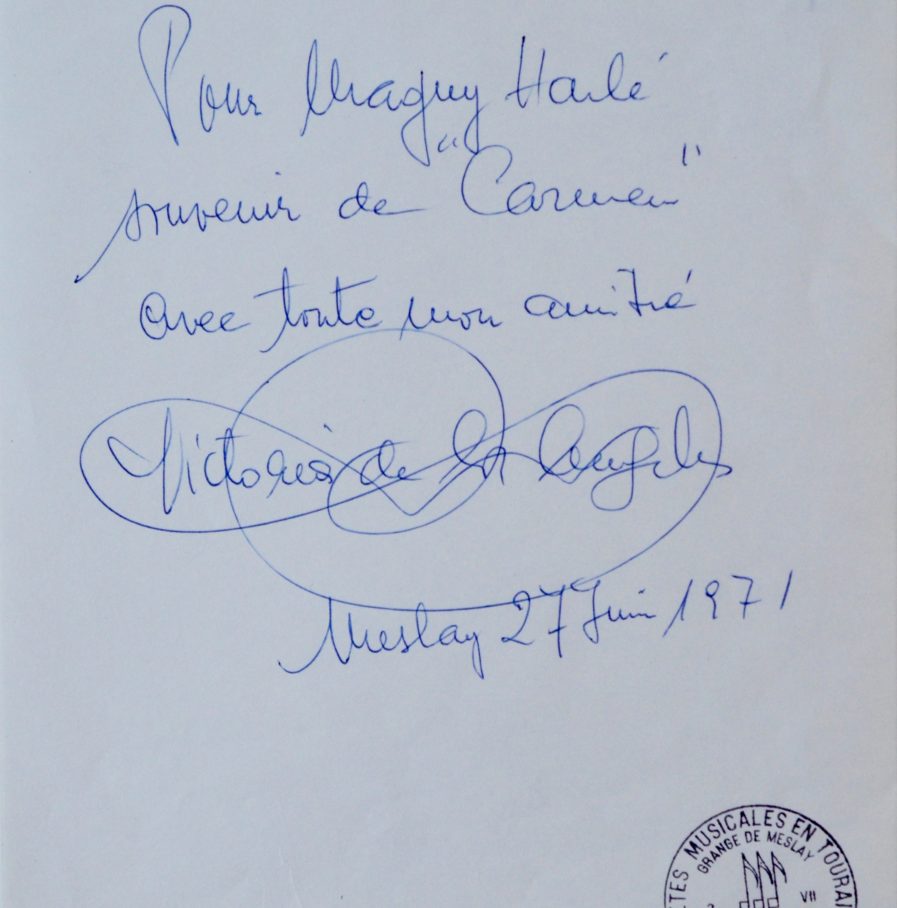 Pour Maguy Harlé
souvenir de "Carmen"
avec toute mon amitié
Victoria de los Angeles
Meslay 27 Juin 1971
TES MUSICALES EN TOURAI
GRANGE DE MESLAY
VII